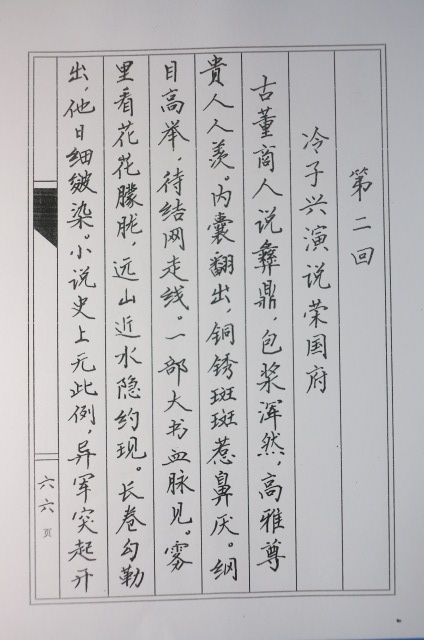 第二回
冷子兴演说荣国府
古董商人说彝鼎，包浆浑然，高雅尊
贵人人羡。内囊翻出，铜锈斑斑惹鼻厌。纲
目高举，待结网走线。一部大书血脉见。雾
里看花花朦胧，远山近水隐约现。长卷勾勒
出，他日细皴染。小说史上无此例，异军突起开
六六页